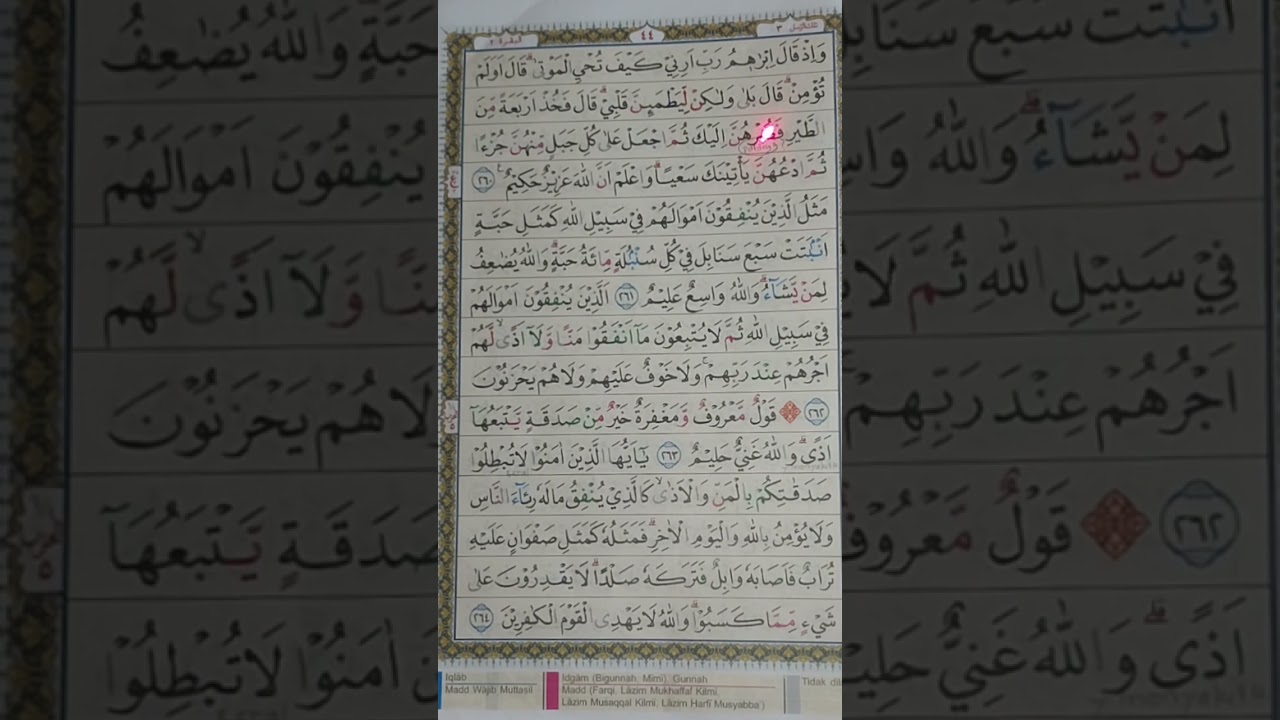 البقرة ٢
٤٤
وَاِذْ قَالَ اِبْرٰهٖمُ رَبِّ اَرِنِيْ كَيْفَ تُحْيِ الْمَوْتٰىۗ قَالَ اَوَلَمْ
تُؤْمِنْۗ قَالَ بَلٰى وَلٰكِنْ لِّيَطْمَىِٕنَّ قَلْبِيْۗ قَالَ فَخُذْ اَرْبَعَةً مِّنَ
الطَّيْرِ فَصُرْهُنَّ اِلَيْكَ ثُمَّ اجْعَلْ عَلٰى كُلِّ جَبَلٍ مِّنْهُنَّ جُزْءًا
ثُمَّ ادْعُهُنَّ يَأْتِيْنَكَ سَعْيًاۗ وَاعْلَمْ اَنَّ اللّٰهَ عَزِيْزٌ حَكِيْمٌ ࣖ ٢٦٠
مَثَلُ الَّذِيْنَ يُنْفِقُوْنَ اَمْوَالَهُمْ فِيْ سَبِيْلِ اللّٰهِ كَمَثَلِ حَبَّةٍ
اَنْۢبَتَتْ سَبْعَ سَنَابِلَ فِيْ كُلِّ سُنْۢبُلَةٍ مِّائَةُ حَبَّةٍۗ وَاللّٰهُ يُضٰعِفُ
لِمَنْ يَّشَاۤءُۗ وَاللّٰهُ وَاسِعٌ عَلِيْمٌ ٢٦١ اَلَّذِيْنَ يُنْفِقُوْنَ اَمْوَالَهُمْ
فِيْ سَبِيْلِ اللّٰهِ ثُمَّ لَا يُتْبِعُوْنَ مَآ اَنْفَقُوْا مَنًّا وَّلَآ اَذًىۙ لَّهُمْ
اَجْرُهُمْ عِنْدَ رَبِّهِمْۚ وَلَا خَوْفٌ عَلَيْهِمْ وَلَا هُمْ يَحْزَنُوْنَ
٢٦٢ ۞ قَوْلٌ مَّعْرُوْفٌ وَّمَغْفِرَةٌ خَيْرٌ مِّنْ صَدَقَةٍ يَّتْبَعُهَآ
اَذًىۗ وَاللّٰهُ غَنِيٌّ حَلِيْمٌ ٢٦٣ يٰٓاَيُّهَا الَّذِيْنَ اٰمَنُوْا لَا تُبْطِلُوْا
صَدَقٰتِكُمْ بِالْمَنِّ وَالْاَذٰىۙ كَالَّذِيْ يُنْفِقُ مَالَهٗ رِئَاۤءَ النَّاسِ
وَلَا يُؤْمِنُ بِاللّٰهِ وَالْيَوْمِ الْاٰخِرِۗ فَمَثَلُهٗ كَمَثَلِ صَفْوَانٍ عَلَيْهِ
تُرَابٌ فَاَصَابَهٗ وَابِلٌ فَتَرَكَهٗ صَلْدًاۗ لَا يَقْدِرُوْنَ عَلٰى
شَيْءٍ مِّمَّا كَسَبُوْاۗ وَاللّٰهُ لَا يَهْدِى الْقَوْمَ الْكٰفِرِيْنَ ٢٦٤
Iqlab
Madd Wajib Muttasil
Idgām (Bigunnah, Mimi), Gunnah
Madd (Farqi, Lāzim Mukhaffaf Kilmi,
Lāzim Musaqqal Kilmi, Lāzim Harfi Musyabba')